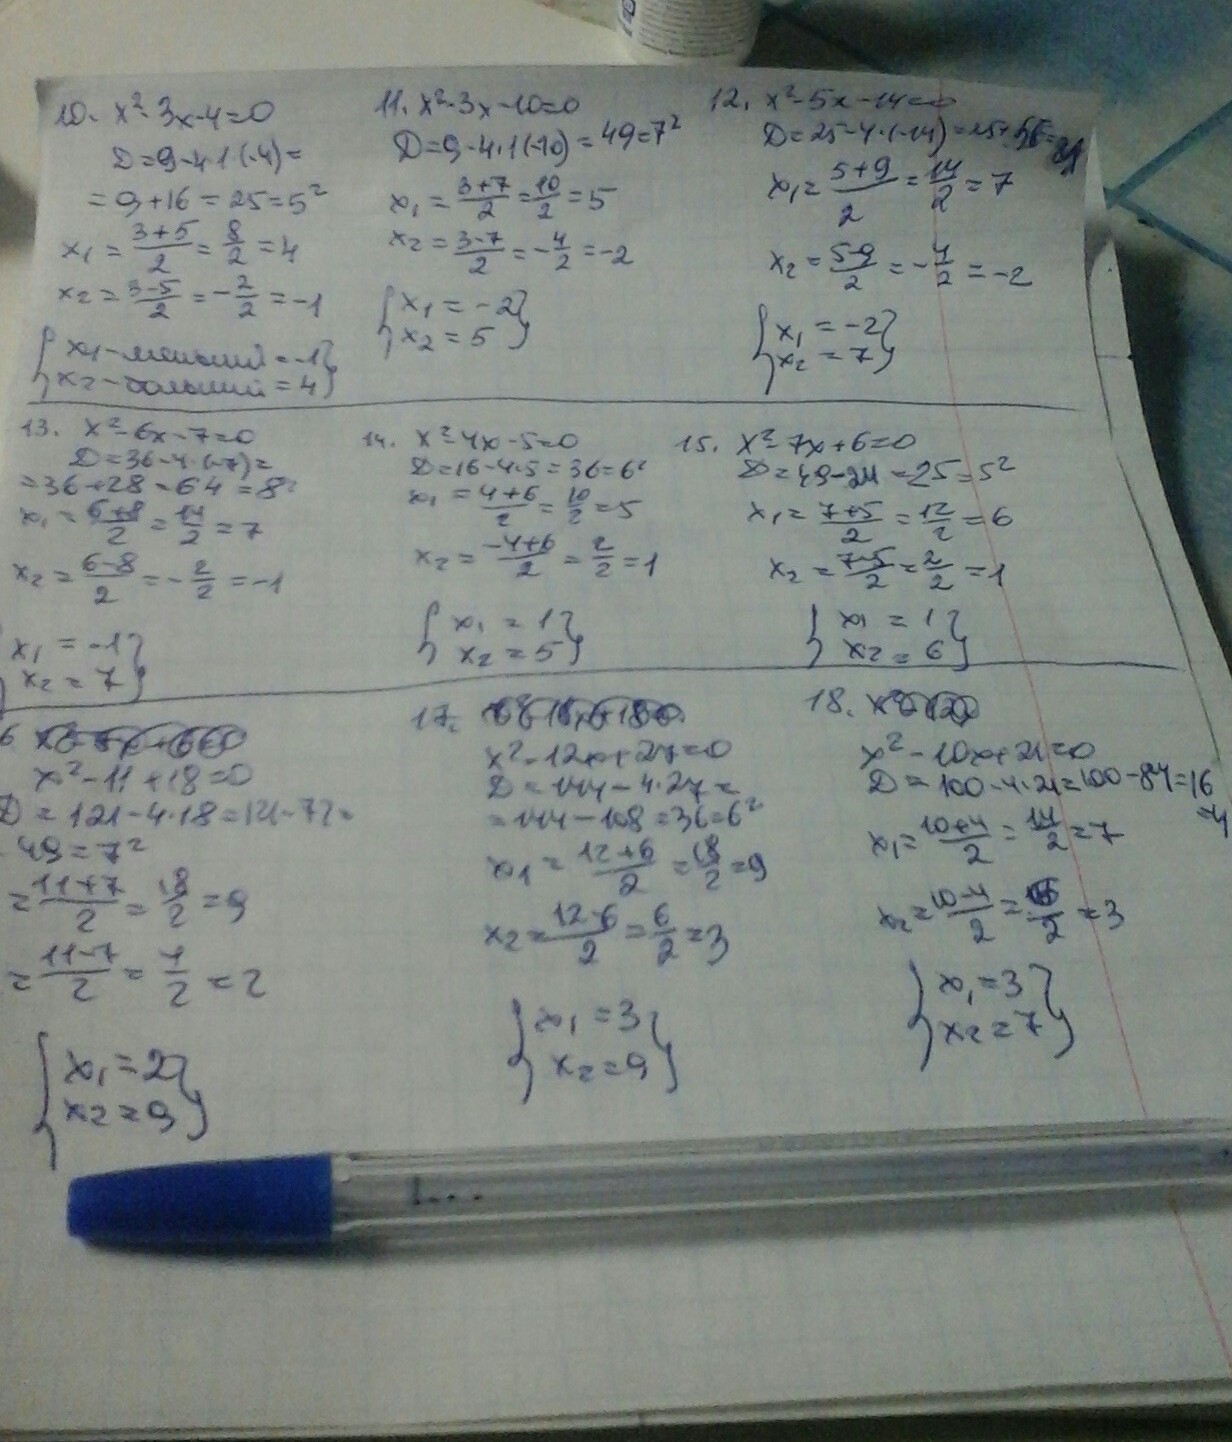 10. x²-3x-4=0
D=9-4·1·(-4)=
=9+16=25=5²
x₁=(3+5)/2=8/2=4
x₂=(3-5)/2=-2/2=-1
{x₁-меньший=-1}
{x₂-больший=4}
11. x²-3x-10=0
D=9-4·1(-10)=49=7²
x₁=(3+7)/2=10/2=5
x₂=(3-7)/2=-4/2=-2
{x₁=-2}
{x₂=5}
12. x²-5x-14=0
D=25-4·(-14)=25+56=81
x₁=(5+9)/2=14/2=7
x₂=(5-9)/2=-4/2=-2
{x₁=-2}
{x₂=7}
13. x²-6x-7=0
D=36-4·(-7)=
=36+28=64=8²
x₁=(6+8)/2=14/2=7
x₂=(6-8)/2=-2/2=-1
{x₁=-1}
{x₂=7}
14. x²-4x-5=0
D=16-4·5=36=6²
x₁=(4+6)/2=10/2=5
x₂=(-4+6)/2=2/2=1
{x₁=1}
{x₂=5}
15. x²-7x+6=0
D=49-24=25=5²
x₁=(7+5)/2=12/2=6
x₂=(7-5)/2=2/2=1
{x₁=1}
{x₂=6}
6
x²-11+18=0
D=121-4·18=121-72=
49=7²
=(11+7)/2=18/2=9
=(11-7)/2=4/2=2
{x₁=2}
{x₂=9}
17.
x²-12x+27=0
D=144-4·27=
=144-108=36=6²
x₁=(12+6)/2=18/2=9
x₂=(12-6)/2=6/2=3
{x₁=3}
{x₂=9}
18.
x²-10x+21=0
D=100-4·21=100-84=16
=4
x₁=(10+4)/2=14/2=7
x₂=(10-4)/2=6/2=3
{x₁=3}
{x₂=7}